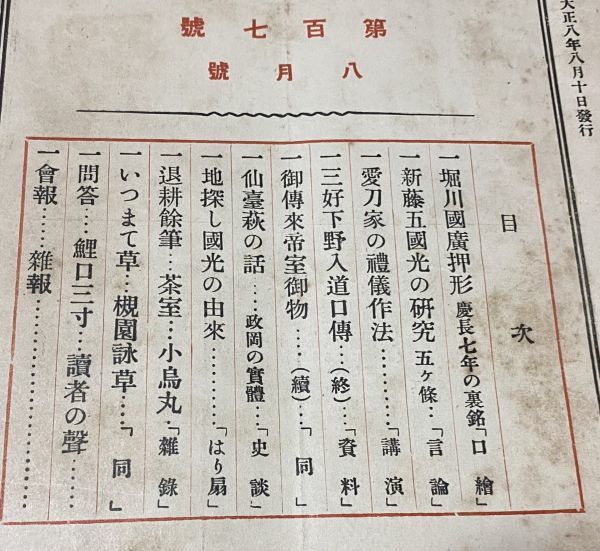 大正八年八月十日發行
第百七號
八月號
目次
一堀川國廣押形 慶長七年の裏銘「口繪」
一新藤五國光の研究 五ヶ條…「言論」
一愛刀家の禮儀作法…………「講演」
一三好下野入道口傳…(終)…「資料」
一御傳來帝室御物……(續)…「同」
一仙臺萩の話……政岡の實體…「史談」
一地探し國光の由來…………「はり扇」
一退耕餘筆…茶室…小烏丸…「雜錄」
一いつまて草…槻園詠草……「同」
一問答……鯉口三寸…讀者の聲……
一會報……雜報…………………